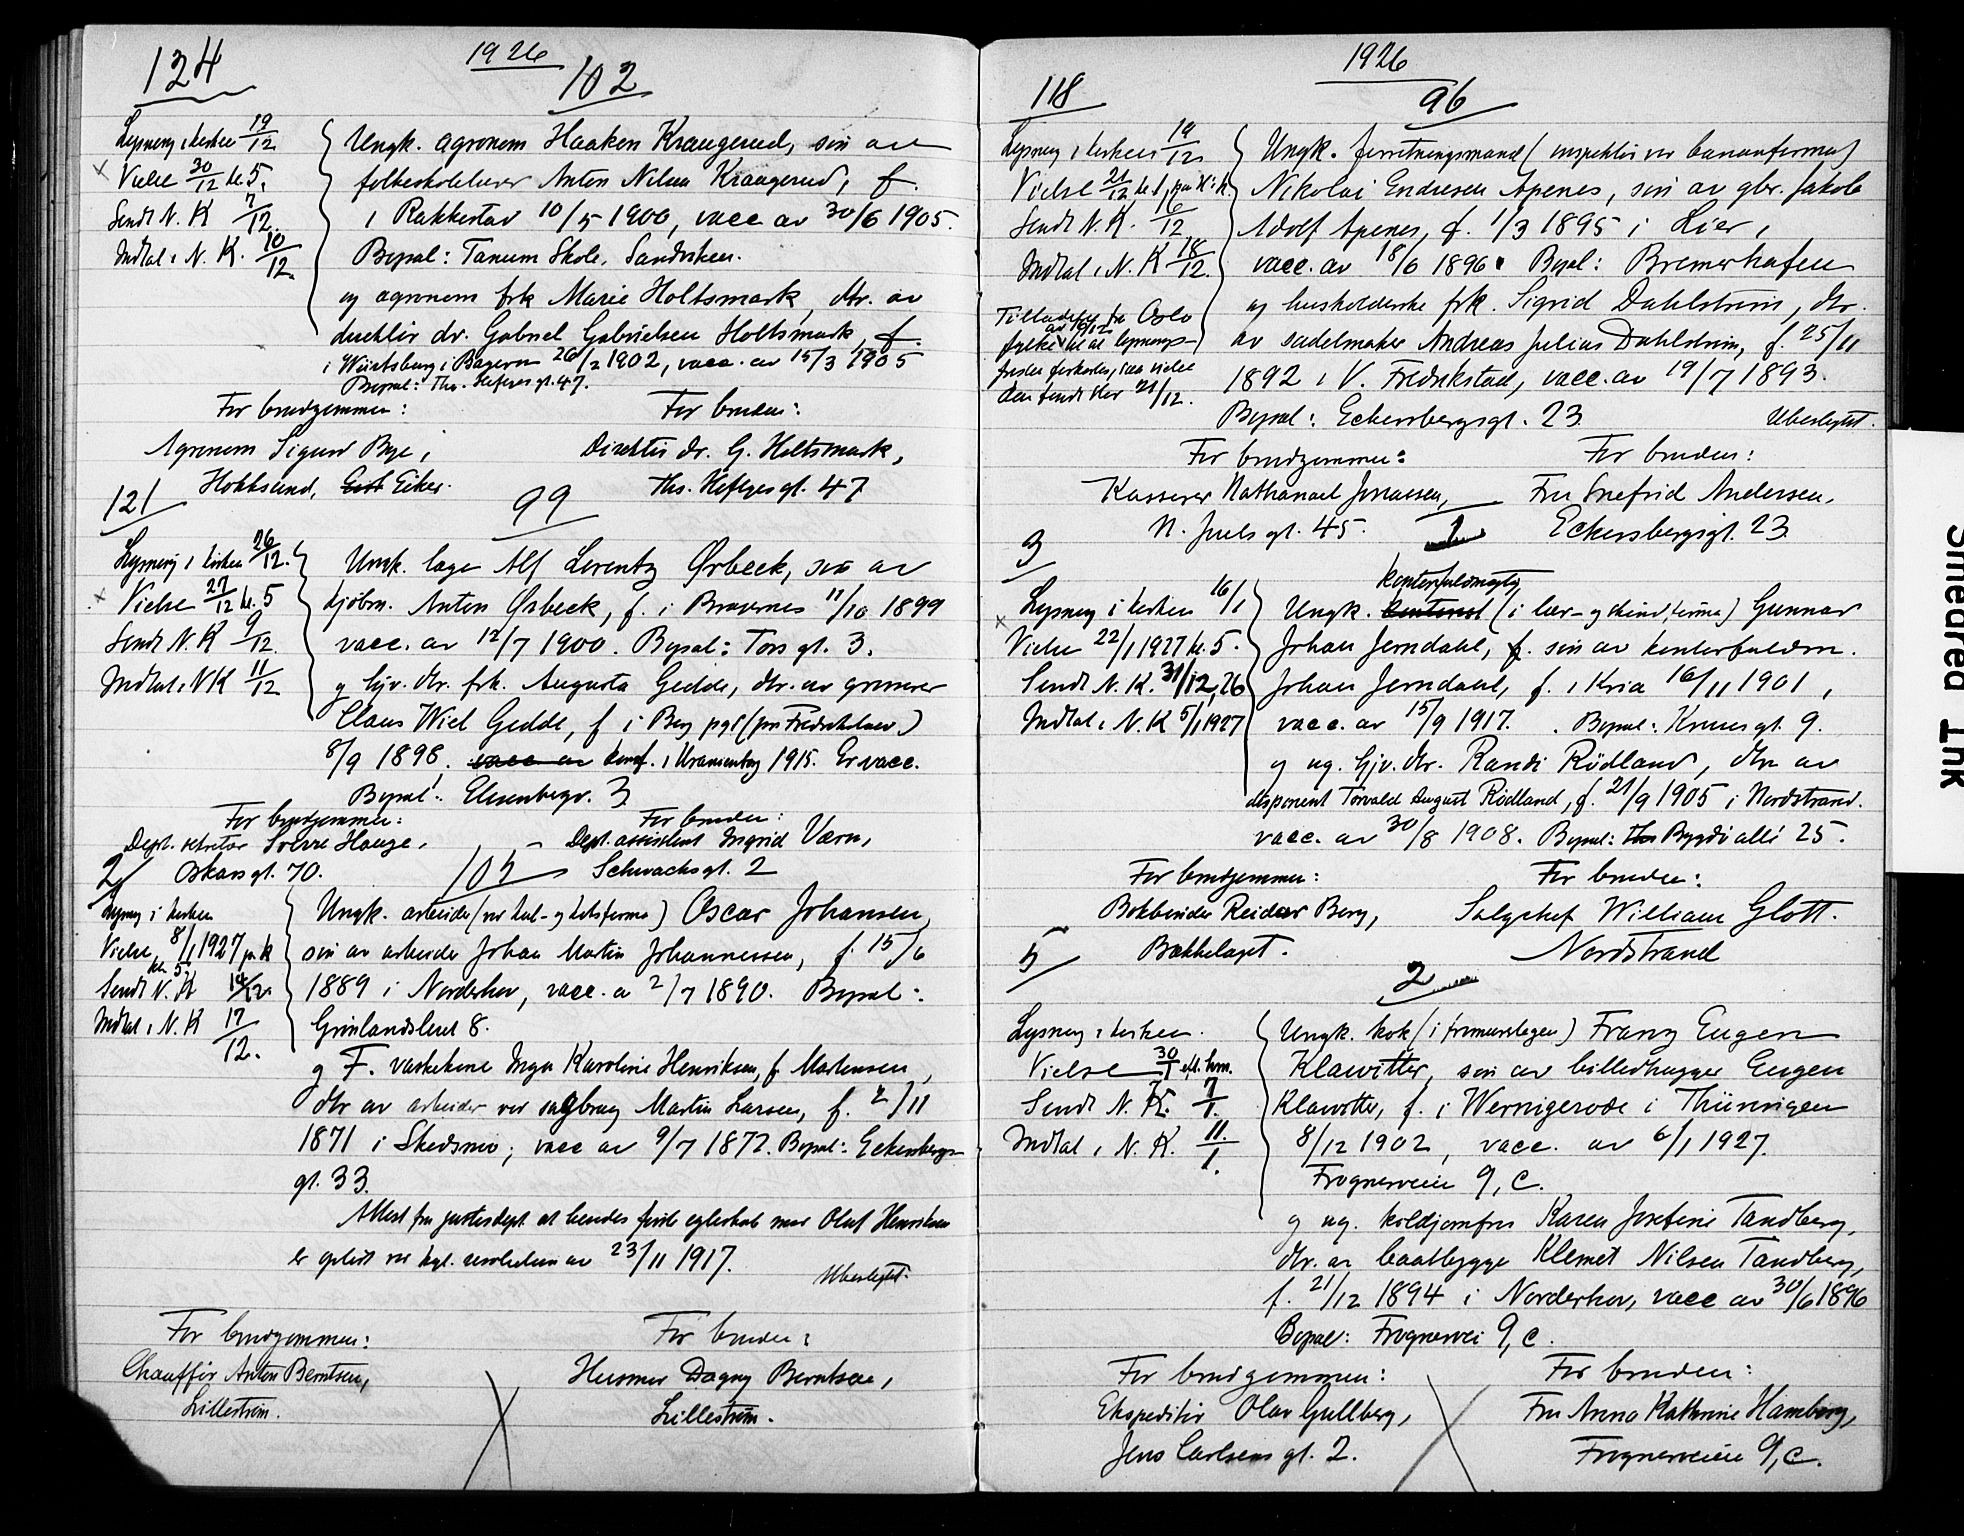 1926
124
102
Lysning i kirken 19/12
Vielse 30/12 kl. 5.
Sendt N. K. 7/12.
Indtat i N. K. 10/12.
Ungk. agronom Haaken Kraugerud, søn av
folkeskolelærer Anton Nilsen Kraugerud, f.
i Rakkestad 10/5 1900, vacc av 30/6 1905.
Bopæl: Tanum Skole, Sandviken.
og agronom frk Marie Holtsmark, dtr. av
direktør dr. Gabriel Gabrielsen Holtsmark, f.
i Würtsburg i Bayern 26/2 1902, vacc. av 15/3 1905
Bopæl: Ths. Heftyes gt. 47.
For brudgommen:
For bruden:
Agronom Sigurd Bye,
Direktør dr. G. Holtsmark,
Hokksund, Eiker.
Ths. Heftyes gt. 47
121
99
Lysning i kirken 26/12.
Vielse 27/12 kl. 5
Sendt N. K 9/12.
Indtat i N K 11/12
Ungk. læge Alf Lorentz Ørbeck, søn av
kjøbm. Anton Ørbeck, f. i Bragernes 11/10 1899
vacc. av 12/7 1900. Bopæl: Tors gt. 3.
og hjv. dtr. frk. Augusta Gedde, dtr. av grosserer
Claus Wiel Gedde, f i Berg pgl (pr Fredrikshald)
8/9 1898. vacc av konf. i Uranienborg 1915. Er vacc.
Bopæl: Elisenbergv. 3
For brudgommen:
For bruden:
Dept. sekretær Sverre Hauge,
Dept. assistent Ingrid Værn,
Oskars gt. 70.
Schwachs gt. 2
2
105
Lysning i kirken
Vielse 8/1 1927 kl. 5
Sendt N. K 14/12
Indtat i N. K 17/12.
Ungk. arbeider (ved kul- og koksfirma) Oscar Johansen,
søn av arbeider Johan Martin Johannessen, f. 15/6
1889 i Norderhov, vacc. a 2/7 1890. Bopæl:
Grønlandsleret 8.
og F. vaskekone Inga Karoline Henriksen, f. Martinsen,
dtr av arbeider ved sagbrug Martin Larsen, f. 2/11
1871 i Skedsmo; vacc av 9/7 1872. Bopæl: Eckersbergs
gt. 33.
Attest fra justisdept at hendes første egteskab med Oluf Henriksen
er opløst ved kgl. resolution av 23/11 1917.
Ubeslegtet.
For brudgommen:
For bruden:
Chauffør Anton Berntsen,
Husmor Dagny Berntsen,
Lillestrøm.
Lillestrøm.
1926
118
96
Lysning i kirken 19/12
Vielse 21/12 kl. 1,
Sendt N. K. 16/12
Indtat i N. K 18/12.
Tilladelse fra Oslo
fylke av 18/12 til at lysnings-
fristen forkortes, saa vielse
kan finde sted 21/12.
Ungk. forretningsmand (inspektør ved bananfirma)
Nikolai Endresen Apenes, søn av gbr. Jakob
Adolf Apenes, f. 1/3 1895 i Lier,
vacc. av 18/6 1896. Bopæl: Bremerhafen
og husholderske frk. Sigrid Dahlstrøm, dtr.
av sadelmaker Andreas Julius Dahlstrøm, f. 25/11
1892 i V. Fredrikstad, vacc. av 19/7 1893.
Bopæl: Eckersbergsgt. 23.
Ubeslegtet.
For brudgommen:
For bruden:
Kasserer Nathanael Jonassen,
Fru Snefrid Andersen,
N. Juels gt. 45.
Eckersbergsgt. 23.
3
1
Lysning i kirken 16/1
Vielse 22/1 1927 kl. 5.
Sendt N. K. 31/12, 26
Indtat i N. K 5/1 1927
kontorfuldmægtig
Ungk. (i lær- og skindfirma) Gunnar
Johan Jerndahl, f. søn av kontorfuldm.
Johan Jerndahl, f. i Kria 16/11 1901,
vacc. av 15/9 1917. Bopæl: Kruses gt. 9.
og ug. hjv. dtr. Randi Rødland, dtr av
disponent Torvald August Rødland, f. 21/9 1905 i Nordstrand.
vacc. av 30/8 1908. Bopæl: Bygdø allé 25.
For brudgommen:
For bruden:
Bokbinder Reidar Berg,
Salgchef William Glott.
Bækkelaget.
Nordstrand
5
2
Lysning i kirken.
Vielse 30/1 eft. høm.
Sendt N. K. 7/1.
Indtat i N. K. 11/1.
Ungk. kok (i frimurerlogen) Franz Eugen
Klawitter, søn av billedhugger Eugen
Klawitter, f. i Wernigerode i Thüringen
8/12 1902, vacc. av 6/1 1927.
Frognerveien 9, C.
og ug. koldjomfru Karen Josefine Tandberg,
dtr. av baatbygger Klemet Nilsen Tandberg,
f. 21/12 1894 i Norderhov, vacc av 30/6 1896
Bopæl: Frognervei 9, C.
For brudgommen:
For bruden:
Ekspeditør Olav Gullberg,
Fru Anna Kathrine Hamborg,
Jens Carlsens gt. 2.
Frognerveien 9, C.
Smeared Ink